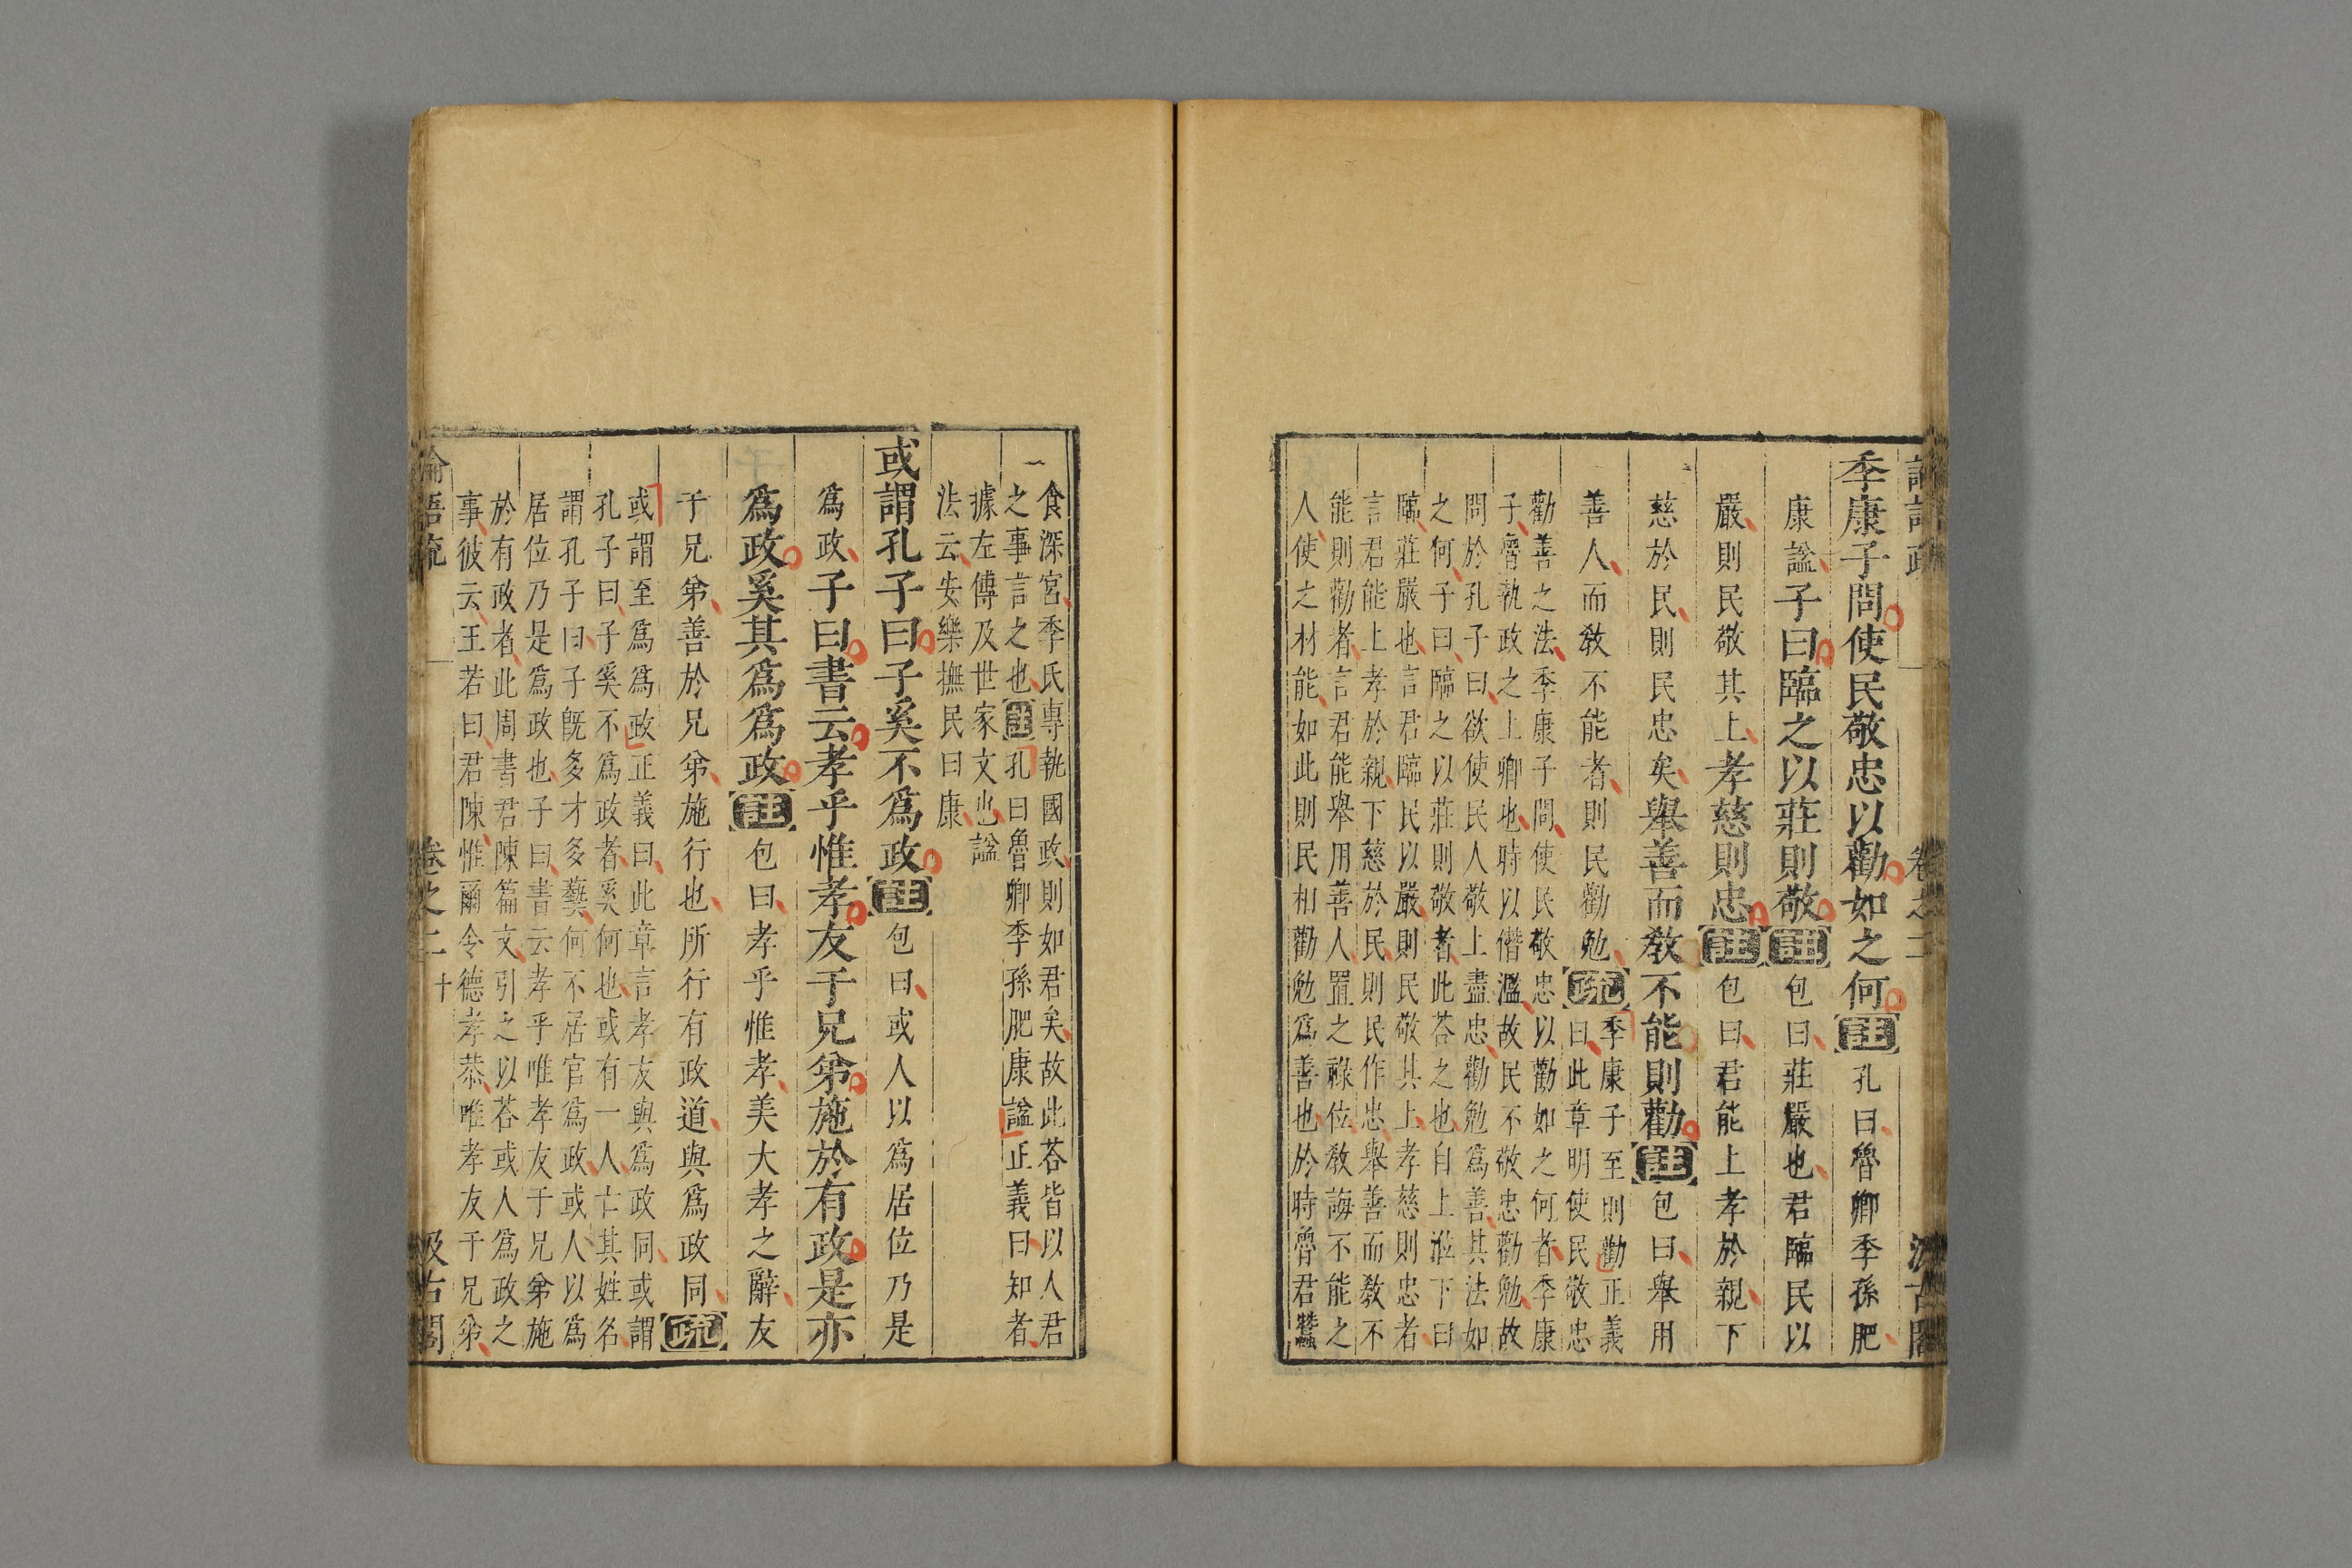 季康子問使民敬忠以勸如之何註孔曰魯卿季孫肥
康諡子曰臨之以莊則敬註包曰莊嚴也君臨民以
嚴則民敬其上孝慈則忠註包曰君能上孝於親下
慈於民則民忠矣舉善而敎不能則勸註包曰舉用
善人而敎不能者則民勸勉疏
季康子至則勸正義
曰此章明使民敬忠
勸善之法季康子問使民敬忠以勸如之何者季康
子魯執政之上卿也時以僭濫故民不敬忠勸勉故
問於孔子曰欲使民人敬上盡忠勸勉爲善其法如
之何子曰臨之以莊則敬者此荅之也自上涖下曰
臨莊嚴也言君臨民以嚴則民敬其上孝慈則忠者
言君能上孝於親下慈於民則民作忠舉善而敎不
能則勸者言君能舉用善人置之祿位敎誨不能之
人使之材能如此則民相勸勉爲善也於時魯君蠶
食深宮季氏專執國政則如君矣故此荅皆以人君
之事言之也註孔曰魯卿季孫肥康諡正義曰知者
據左傳及世家文也諡
法云安樂撫民曰康
或謂孔子曰子奚不爲政註包曰或人以爲居位乃是
爲政子曰書云孝乎惟孝友于兄弟施於有政是亦
爲政奚其爲爲政註包曰孝乎惟孝美大孝之辭友
于兄弟善於兄弟施行也所行有政道與爲政同疏
或謂至爲爲政正義曰此章言孝友與爲政同或謂
孔子曰子奚不爲政者奚何也或有一人亡其姓名
謂孔子曰子旣多才多藝何不居官爲政或人以爲
居位乃是爲政也子曰書云孝乎唯孝友于兄弟施
於有政者此周書君陳篇文引之以荅或人爲政之
事彼云王若曰君陳惟爾令德孝恭唯孝友于兄弟
卷之二 十